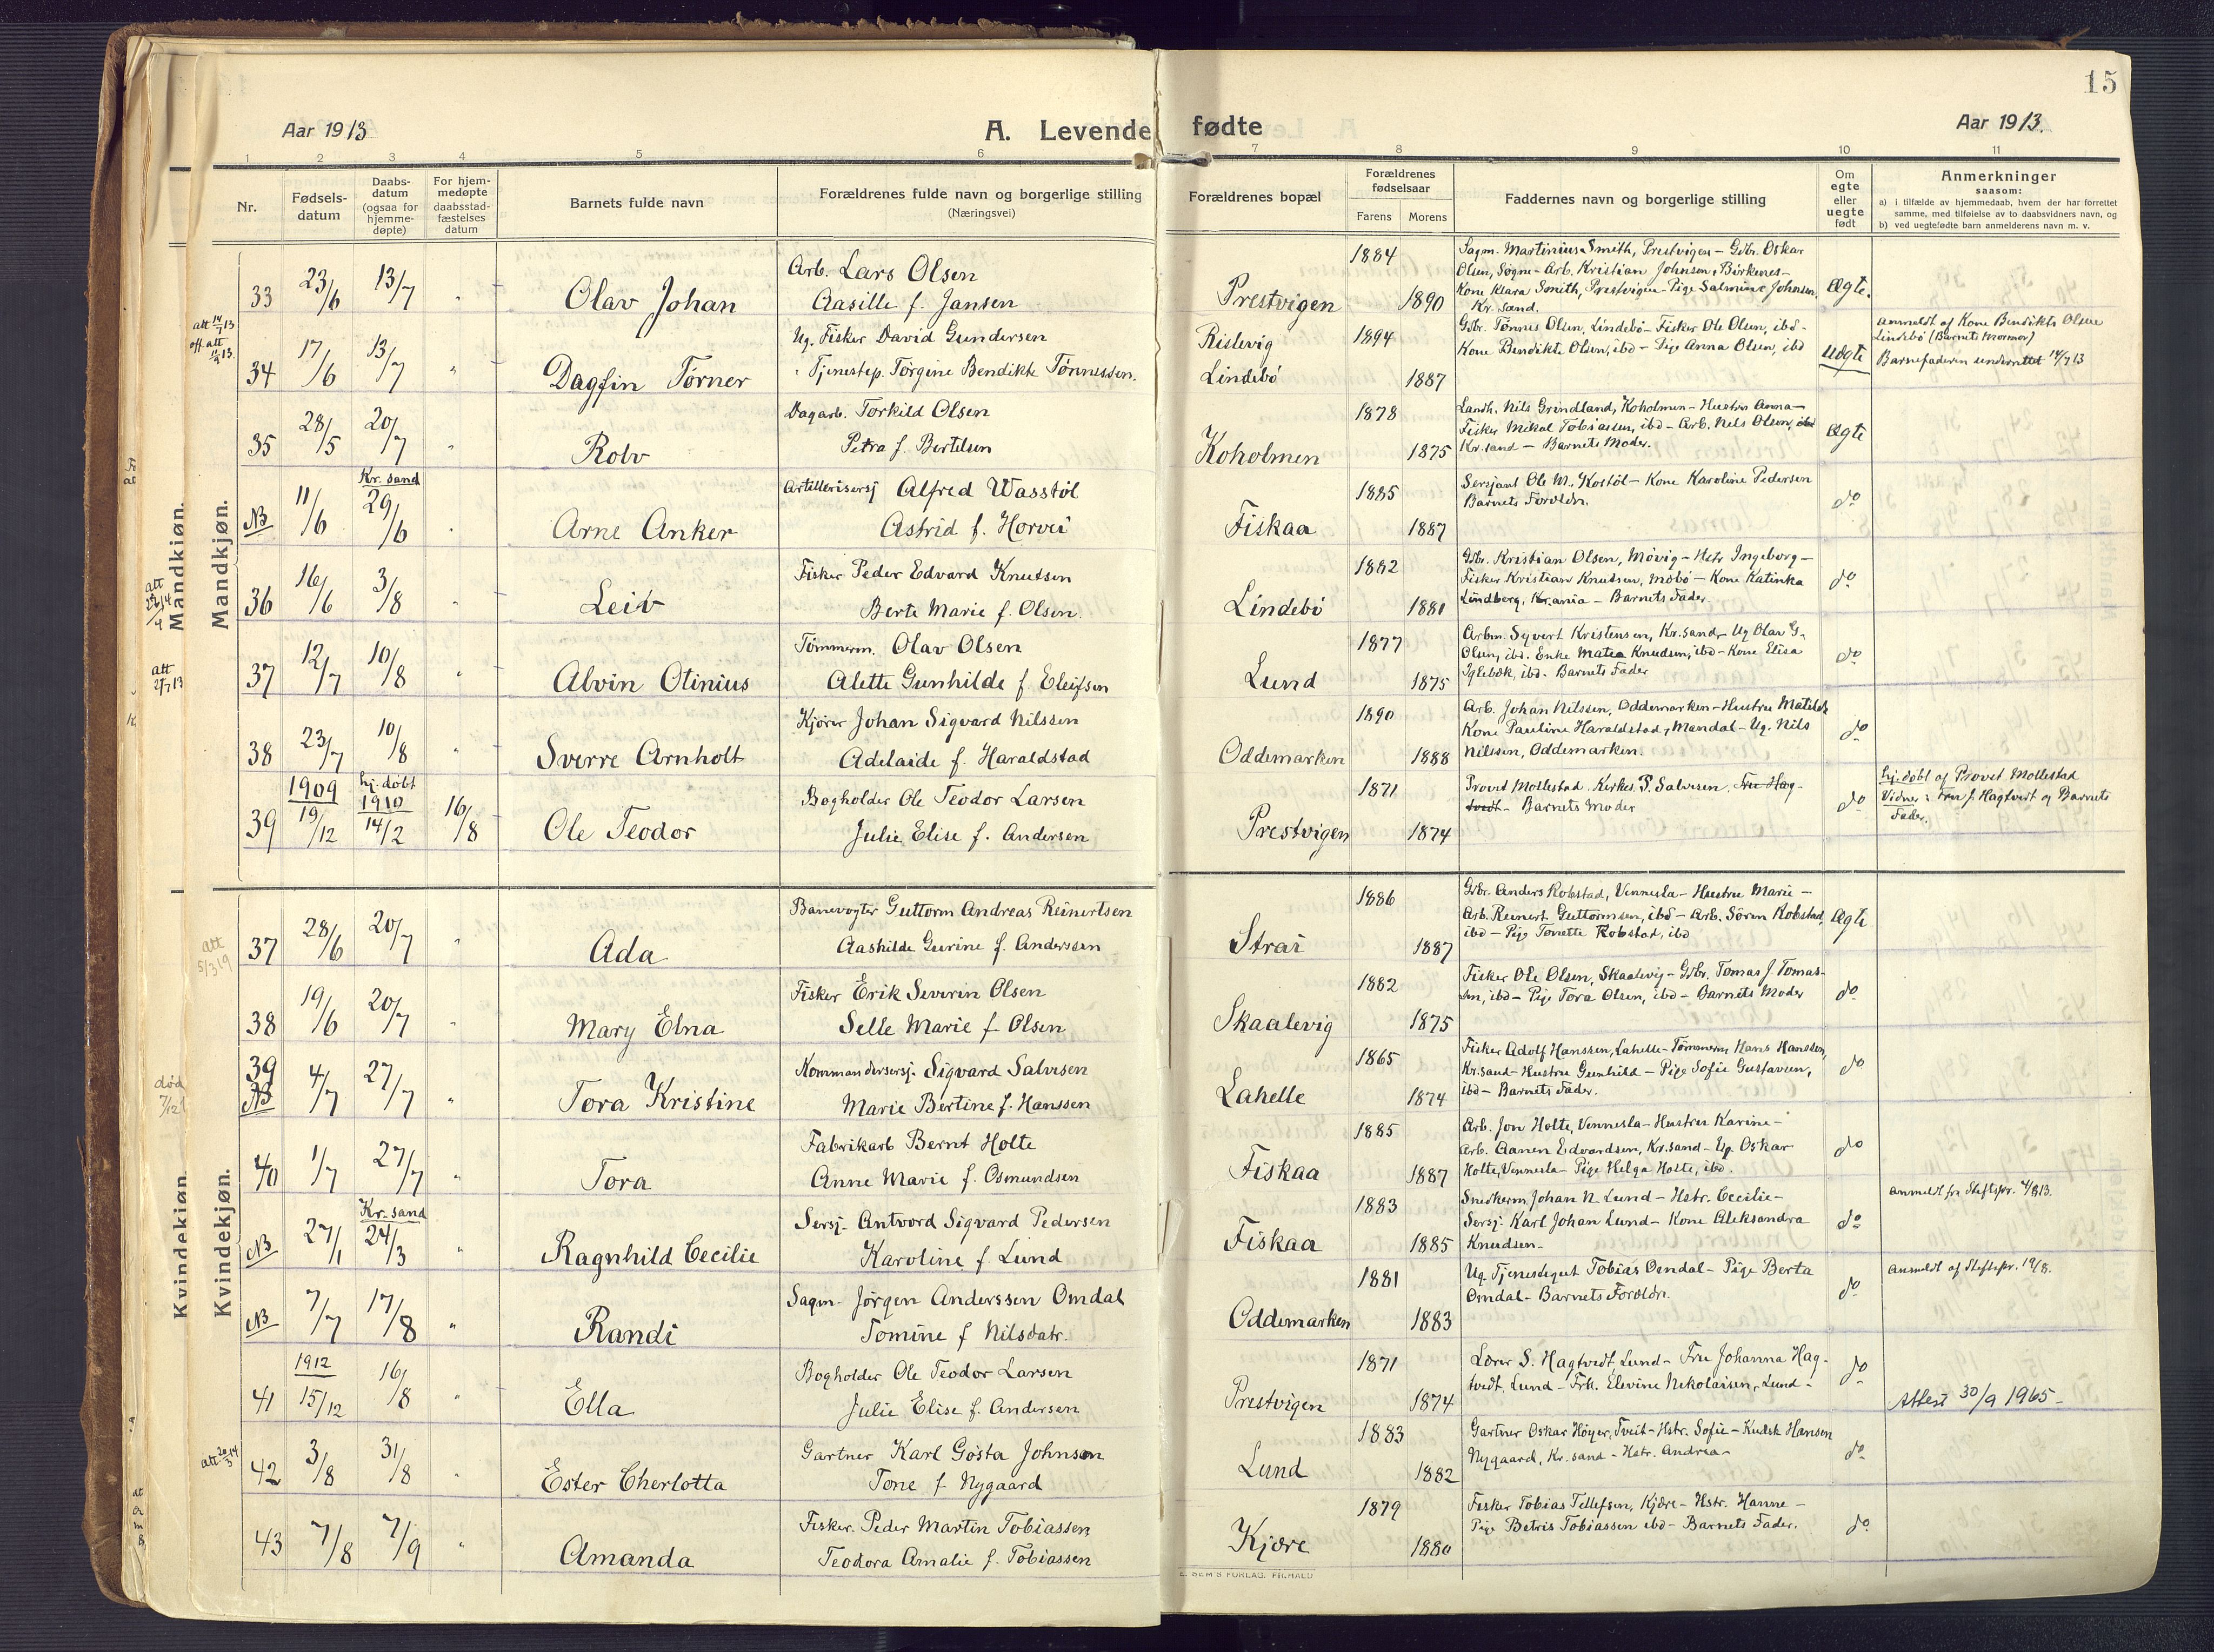 15
Aar 1913
A. Levende fødte
Aar 1913.
1 2 3 4 5 6 7 8 9 10 11
Nr.
Fødsels-
datum
Daabs-
datum
(ogsaa for
hjemme-
døpte)
For hjem-
medøpte
daabsstad-
fæstelses
datum
Barnets fulde navn
Forældrenes fulde navn og borgerlige stilling
(Næringsvei)
Forældrenes bopæl
Forældrenes
fødselsaar
Farens Morens
Faddernes navn og borgerlige stilling
Om
egte
eller
uegte
født
Anmerkninger
saasom:
a) i tilfælde av hjemmedaab, hvem der har forrettet
samme, med tilføielse av to daabsvidners navn, og
b) ved uegtefødte barn anmelderens navn m. v.
Mandkjøn.
Mandkjøn.
33 23/6 13/7 " Olav Johan
Arb. Lars Olsen
Aasille f. Jansen
Prestvigen 1884 1890
Sagm. Martinius Smith, Prestvigen - Gdbr. Oskar
Olsen, Søgne - Arb. Kristian Johnsen, Birkenes -
Kone Klara Smith, Prestvigen - Pige Salmine Johnsen,
Kr. sand.
Ægte.
att 14/7 13
off. att
13
34 17/6 13/7 " Dagfin Tørner
Ug. Fisker David Gundersen
" Tjenestep. Tørgine Bendikte Tønnessen.
Rislevig
Lindebø
1894 1887
Gdbr. Tønnes Olsen, Lindebø - Fisker Ole Olsen, ibd -
Kone Bendikte Olsen, ibd - Pige Anna Olsen, ibd
Uægte
Anmeldt af Kone Bendikte Olsen
Lindebø (Barnets Mormor)
Barnefaderen underrettet 14/7 13
35 28/5 20/7 " Rolv
Dagarb. Torkild Olsen
Petra f. Bertelsen
Koholmen 1878 1875
Landh. Nils Grindland, Koholmen - Hustru Anna -
Fisker Mikal Tobiassen, ibd - Arb. Nils Olsen,
Kr.sand - Barnets Moder.
Ægte
NB 11/6 Kr. sand 29/6 " Arne Anker
Artillerisersj Alfred Wasstøl
Astrid f. Horvei
Fiskaa 1885 1887
Sersjant Ole M. Kostøl - Kone Karoline Pedersen
Barnets Forældre.
do
36 16/6 3/8 " Leiv
Fisker Peder Edvard Knutsen
Berte Marie f. Olsen.
Lindebø 1882 1881
Gdbr. Kristian Olsen, Møvig - Hstr Ingeborg -
Fisker Kristian Knutsen, Møbø - Kone Katinka
Lindberg, Kr.ania - Barnets Fader.
do
att
2/7 13
37 12/7 10/8 " Alvin Otinius
Tømmerm. Olav Olsen
Alette Gunhilde f. Eleifsen
Lund 1877 1875
Arbm. Syvert Kristensen, Kr.sand - Ug Olav G.
Olsen, ibd. Enke Matea Knudsen, ibd - Kone Elisa
Iglebæk, ibd - Barnets Fader
do
38 23/7 10/8 " Sverre Arnholt
Kjører Johan Sigvard Nilssen
Adelaide f. Haraldstad
Oddemarken 1890 1888
Arb. Johan Nilssen, Oddemarken - Hustru Matilde
Kone Pauline Haraldstad, Mandal - Ug. Nils
Nilssen, Oddemarken.
do
39 1909 19/12 hj. døbt 1910 14/2 16/8 Ole Teodor
Bogholder Ole Teodor Larsen
Julie Elise f. Andersen
Prestvigen 1871 1874
Provst Mollestad. Kirkes. P. Salvesen. Fru Hag-
tvedt - Barnets Moder
do
hj. døbt af Provst Mollestad
Vidner: Fru J. Hagtvedt og Barnets
Fader.
Kvindekjøn.
Kvindekjøn.
att
5/3 19
37 28/6 20/7 " Ada
Banevogter Guttorm Andreas Reinertsen
Aashilde Gurine f. Anderssen
Strai 1886 1887
Gdbr. Anders Robstad, Vennesla - Hustru Marie -
Arb. Reinert Guttormsen, ibd - Arb. Søren Robstad,
ibd - Pige Tomette Robstad, ibd
Ægte
38 19/6 20/7 " Mary Elna
Fisker Erik Severin Olsen
Selle Marie f. Olsen
Skaalevig 1882 1875
Fisker Ole Olsen, Skaalevig - Gdbr. Tomas J. Tomas-
sen, ibd - Pige Tora Olsen, ibd - Barnets Moder
do
død
7/12
39 NB 4/7 27/7 " Tora Kristine
Kommandersersj. Sigvard Salvesen
Marie Bertine f. Hanssen
Lahelle 1865 1874
Fisker Adolf Hanssen, Lahelle - Tømmerm Hans Hanssen,
Kr.sand - Hustru Gunhild - Pige Sofie Gustavsen,
ibd - Barnets Fader.
do
40 1/7 27/7 " Tora
Fabrikarb Bernt Holte
Anne Marie f. Osmundsen
Fiskaa 1885 1887
Arb. Jon Holte, Vennesla - Hustru Karine -
Arb. Aanen Edvardsen, Kr.sand - Ug. Oskar
Holte, Vennesla - Pige Helga Holte, ibd.
do
NB 27/1 Kr. sand 24/3 " Ragnhild Cecilie
Sersj. Antvord Sigvard Pedersen
Karoline f. Lund
Fiskaa 1883 1885
Snedkerm Johan N. Lund - Hstr. Cecilie -
Sersj. Karl Johan Lund - Kone Aleksandra
Knudsen -
do
Anmeldt fra Stiftspr. 4/8 13.
NB 7/7 17/8 " Randi
Sagm. Jørgen Anderssen Omdal
Tomine f Nilsdatr.
Oddemarken 1881 1883
Ug. Tjenestegut Tobias Omdal - Pige Berta
Omdal - Barnets Forældre.
do
Anmeldt af Stiftspr. 19/8.
41 1912 15/12 16/8 " Ella
Bogholder Ole Teodor Larsen
Julie Elise f. Andersen
Prestvigen 1871 1874
Lærer S. Hagtvedt, Lund - Fru Johanna Hag-
tvedt, Lund - Frk. Elevine Nikolaisen, Lund -
do
Attest 30/9 1965 -
att 20/3 14
42 3/8 31/8 " Ester Cherlotta
Gartner Karl Gøsta Johnson
Tone f Nygaard
Lund 1883 1882
Gartner Oskar Høyer, Tveit - Hstr. Sofie - Kudsk Hansen
Nygaard, Kr. sand - Hstr. Andrea -
do
43 7/8 7/9 " Amanda
Fisker. Peder Martin Tobiassen
Teodora Amalie f. Tobiassen
Kjære 1879 1880
Fisker Tobias Tellefsen, Kjære - Hstr. Hanne -
Pige Betris Tobiassen ibd - Barnets Fader.
do